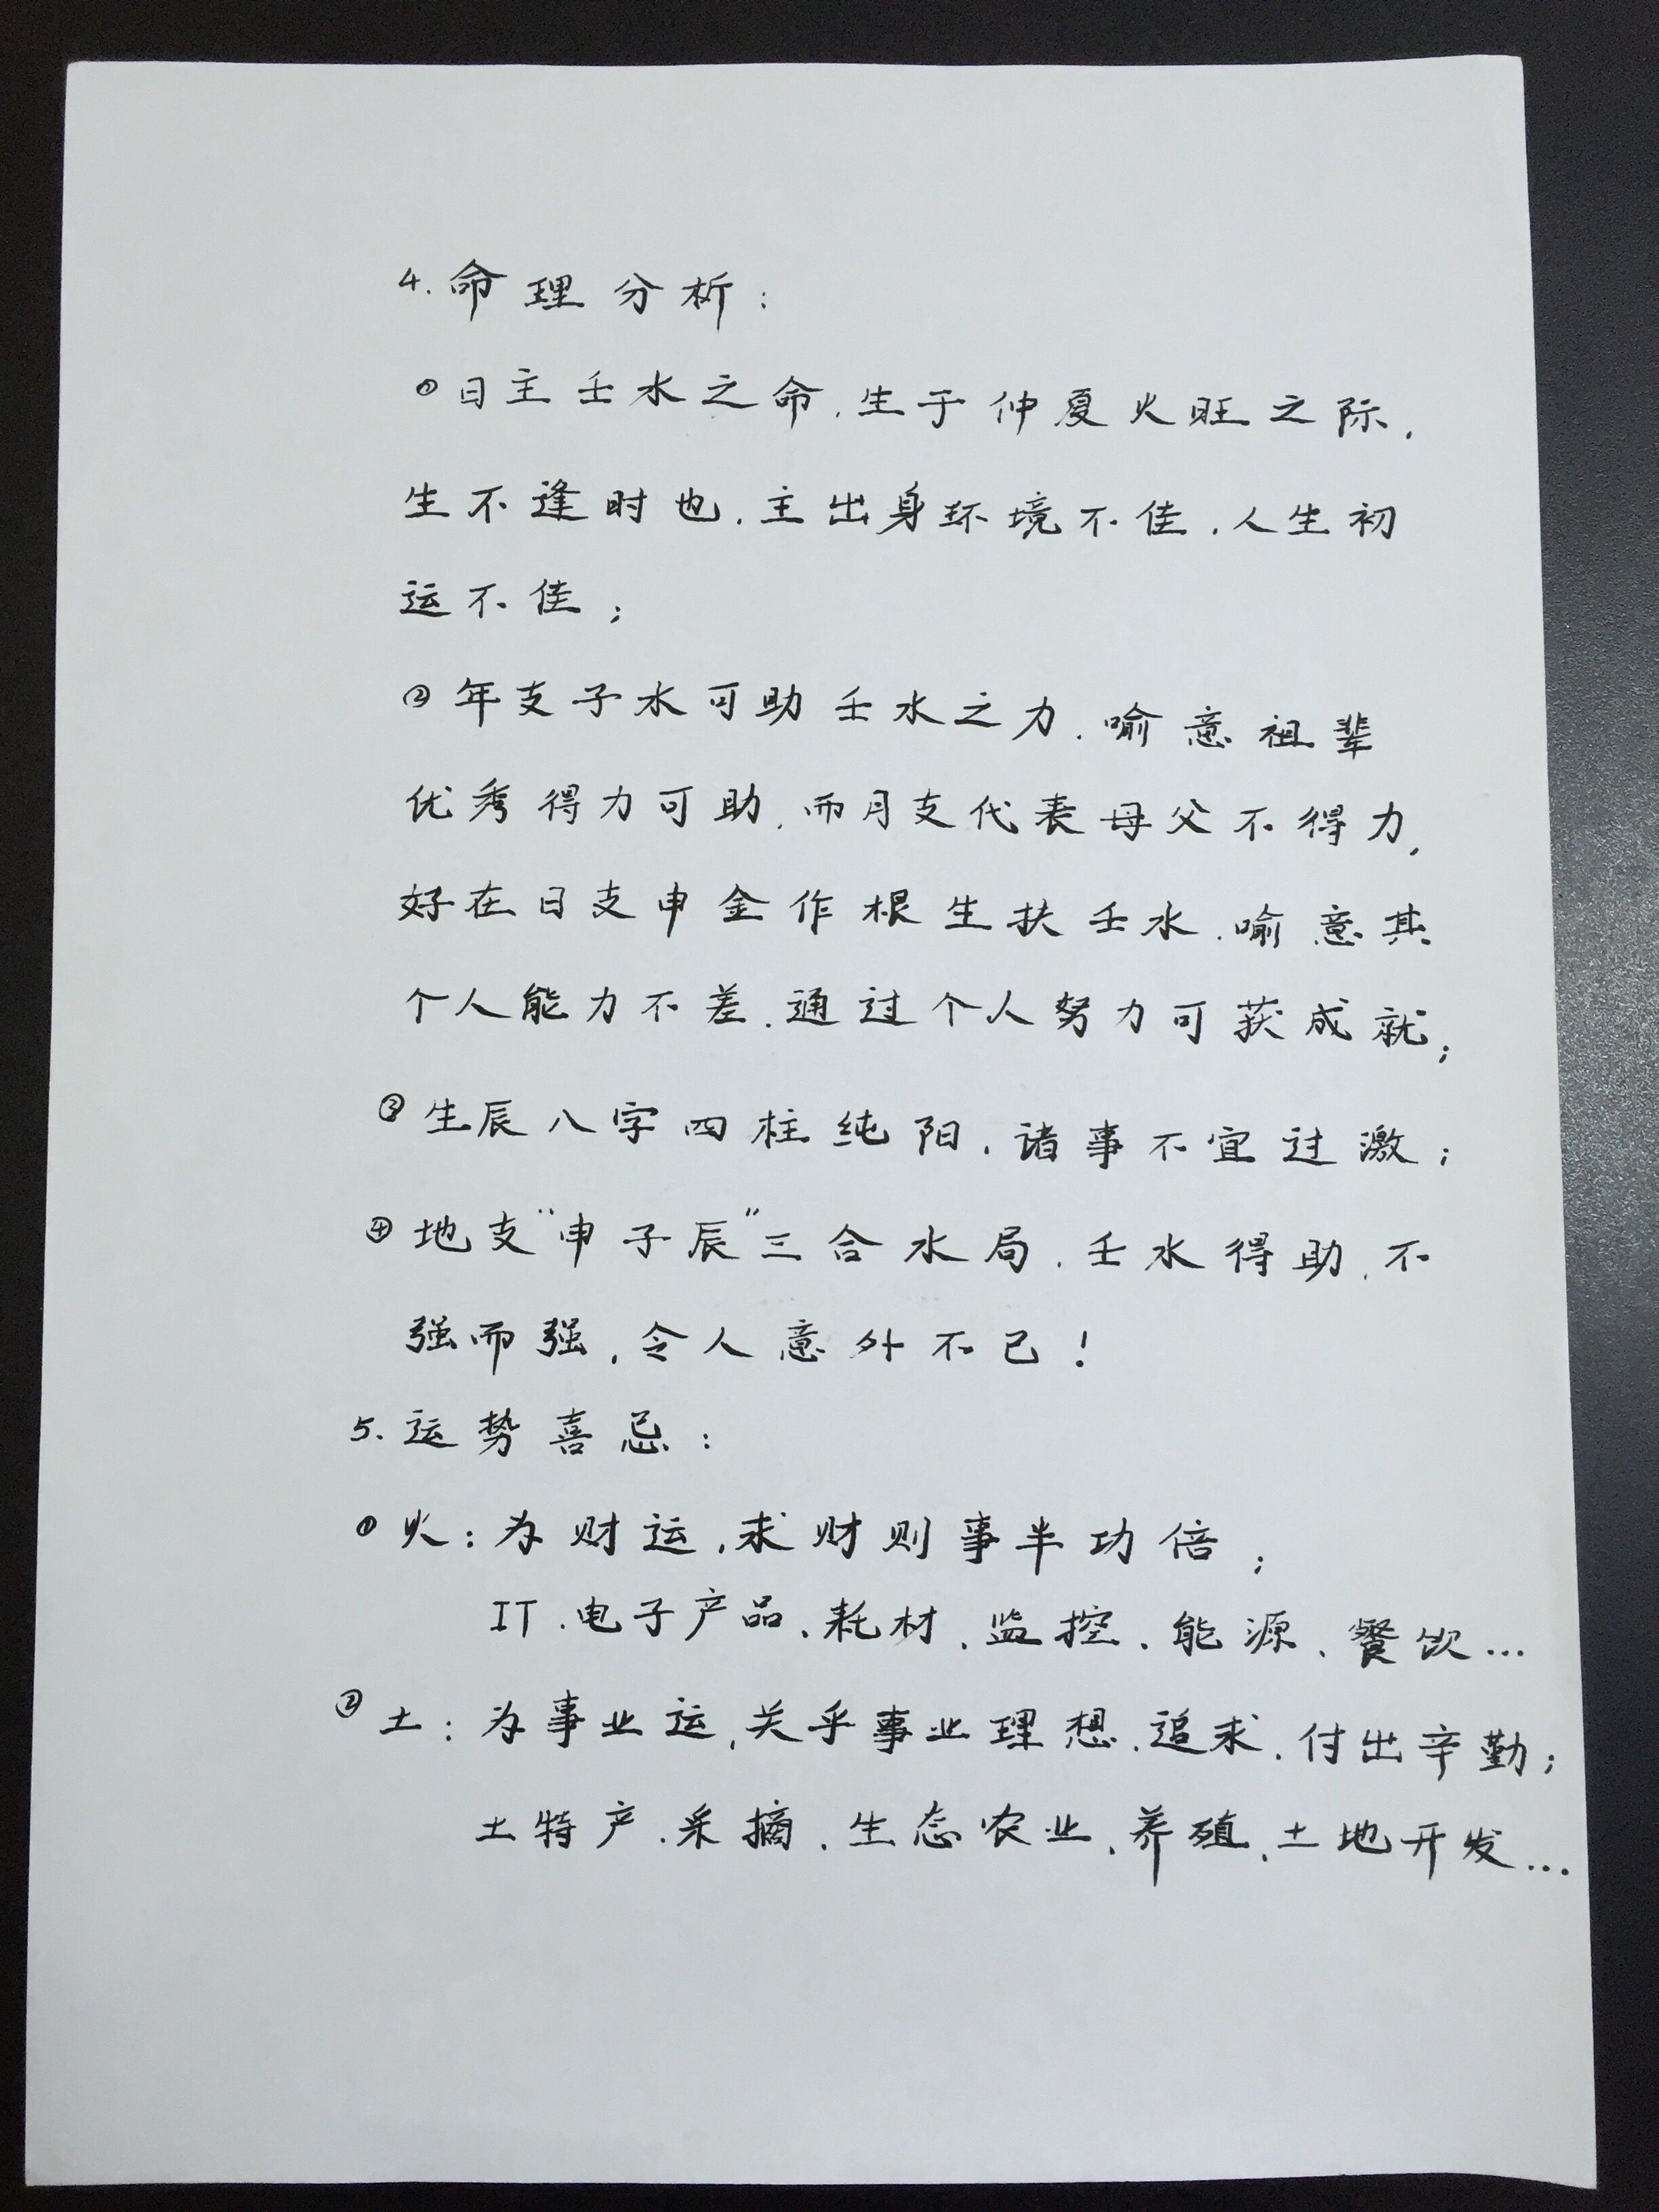 4.命理分析:
①日主壬水之命,生于仲夏火旺之际,
生不逢时也,主出身环境不佳,人生初
运不佳;
②年支子水可助壬水之力,喻意祖辈
优秀得力可助,而月支代表母父不得力,
好在日支申金作根生扶壬水,喻意其
个人能力不差,通过个人努力可获成就;
③生辰八字四柱纯阳,诸事不宜过激;
④地支“申子辰”三合水局,壬水得助,不
强而强,令人意外不已!
5.运势喜忌:
①火:为财运,求财则事半功倍;
IT、电子产品、耗材、监控、能源、餐饮…
②土:为事业运,关乎事业理想、追求、付出辛勤;
土特产、采摘、生态农业、养殖、土地开发…